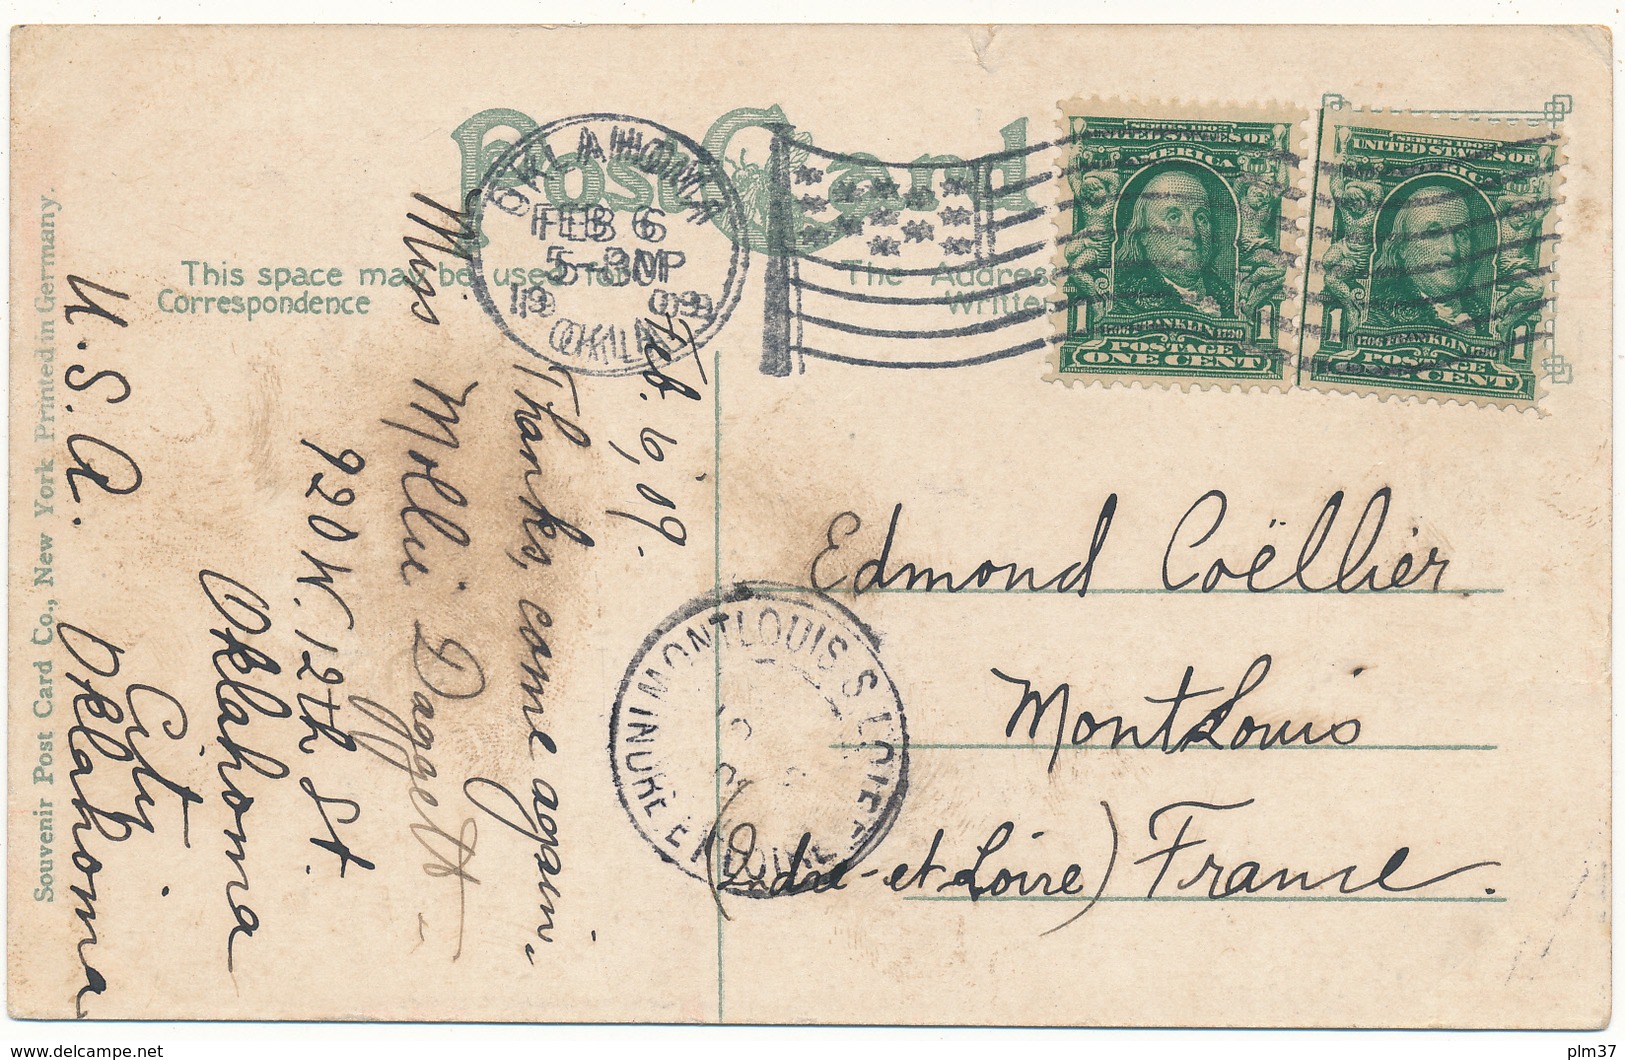 Post Card
This space may be used for
Correspondence
The Address
Written
OKLAHOMA
FEB 6
5-PM
1909
OKLA.
SERIES 1902
UNITED STATES OF
AMERICA
1706 FRANKLIN 1790
1 POSTAGE 1
ONE CENT
SERIES 1902
UNITED STATES OF
AMERICA
1706 FRANKLIN 1790
1 POSTAGE 1
ONE CENT
Feb. 6, '09.
Thanks, come again.
Miss Mollie Daggett
920 W. 12th St.
Oklahoma
City
Oklahoma
U.S.A.
Souvenir Post Card Co., New York Printed in Germany.
Edmond Coëllier
MontLouis
(Indre-et-Loire) France.
MONTLOUIS S. LOIRE
INDRE ET LOIRE
plm37
www.delcampe.net